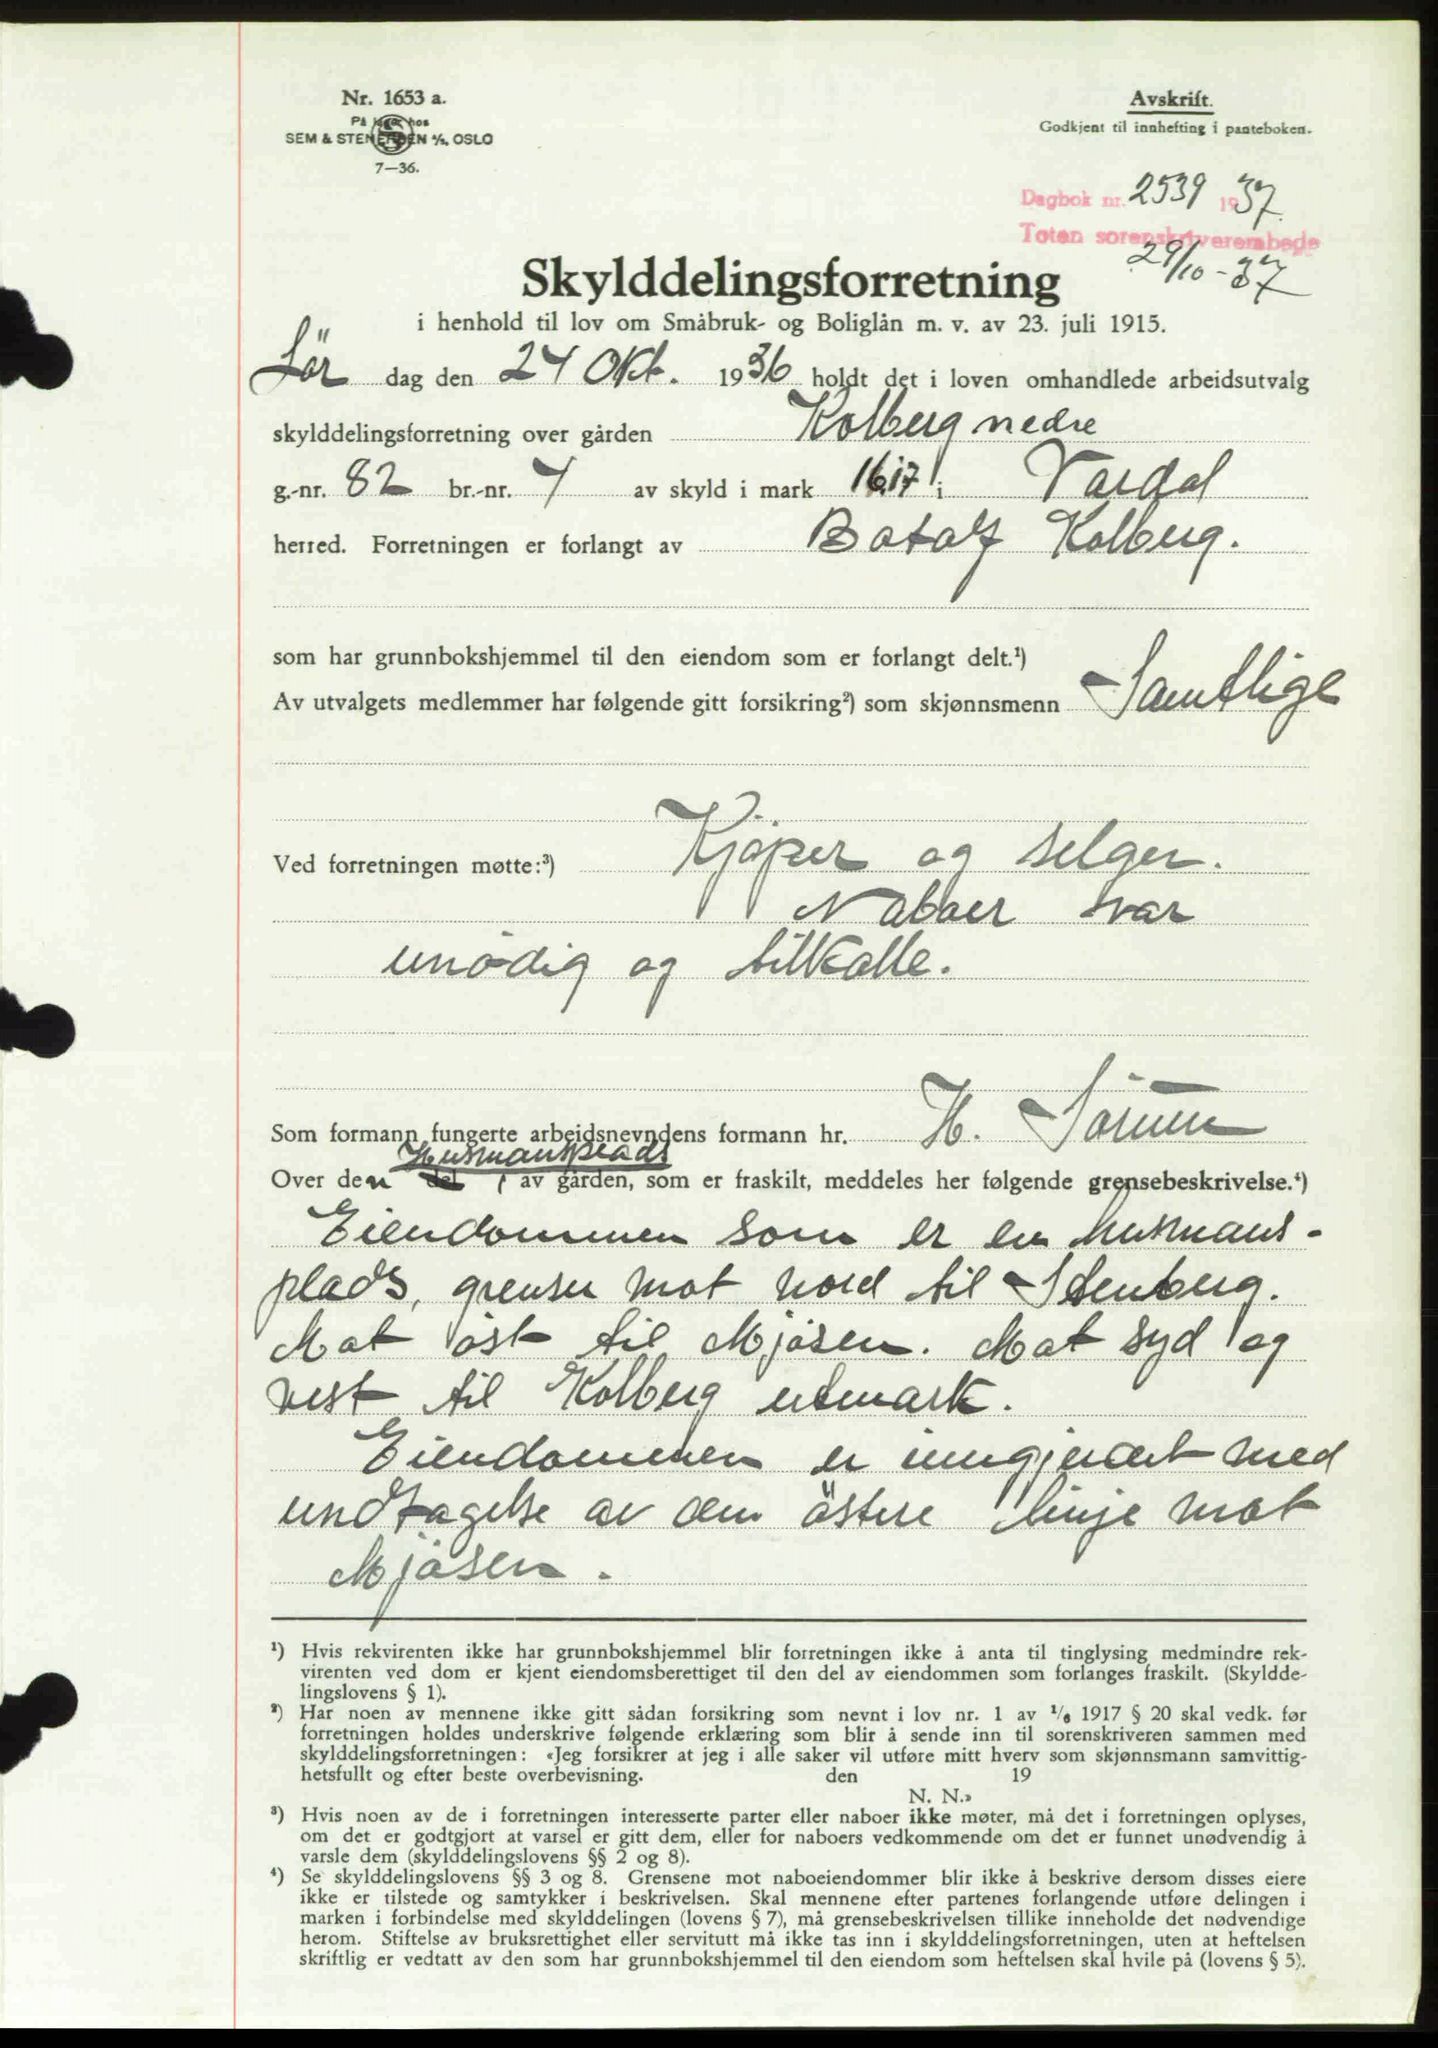 Nr. 1653 a.
På lager hos
SEM & STENERSEN A/S, OSLO
7—36.
Avskrift.
Godkjent til innhefting i panteboken.
Dagbok nr. 2539 1937.
Toten sorenskriverembede
29/10-37
Skylddelingsforretning
i henhold til lov om Småbruk- og Boliglån m. v. av 23. juli 1915.
Lör dag den 24 Okt. 1936 holdt det i loven omhandlede arbeidsutvalg
skylddelingsforretning over gården Kolberg nedre
g.-nr. 82 br.-nr. 4 av skyld i mark 16,17 i Vardal
herred. Forretningen er forlangt av Botolf Kolberg.
som har grunnbokshjemmel til den eiendom som er forlangt delt.¹)
Av utvalgets medlemmer har følgende gitt forsikring²) som skjønnsmenn Samtlige
Ved forretningen møtte:³) Kjöper og selger.
Naboer var
unödig og tilkalle.
Som formann fungerte arbeidsnevndens formann hr. H. Sörum
Husmansplads
Over den del av gården, som er fraskilt, meddeles her følgende grensebeskrivelse.⁴)
Eiendommen som er en husmans-
plads, grenser mot nord til Stenberg.
Mot öst til Mjösen. Mot syd og
vest til Kolberg utmark.
Eiendommen er inngjerdet med
undtagelse av den östere linje mot
Mjösen.
¹) Hvis rekvirenten ikke har grunnbokshjemmel blir forretningen ikke å anta til tinglysing medmindre rek-
virenten ved dom er kjent eiendomsberettiget til den del av eiendommen som forlanges fraskilt. (Skyldde-
lingslovens § 1).
²) Har noen av mennene ikke gitt sådan forsikring som nevnt i lov nr. 1 av 1/6 1917 § 20 skal vedk. før
forretningen holdes underskrive følgende erklæring som blir å sende inn til sorenskriveren sammen med
skylddelingsforretningen: «Jeg forsikrer at jeg i alle saker vil utføre mitt hverv som skjønnsmann samvittig-
hetsfullt og efter beste overbevisning. den 19
N. N.»
³) Hvis noen av de i forretningen interesserte parter eller naboer ikke møter, må det i forretningen oplyses,
om det er godtgjort at varsel er gitt dem, eller for naboers vedkommende om det er funnet unødvendig å
varsle dem (skylddelingslovens §§ 2 og 8).
⁴) Se skylddelingslovens §§ 3 og 8. Grensene mot naboeiendommer blir ikke å beskrive dersom disses eiere
ikke er tilstede og samtykker i beskrivelsen. Skal mennene efter partenes forlangende utføre delingen i
marken i forbindelse med skylddelingen (lovens § 7), må grensebeskrivelsen tillike inneholde det nødvendige
herom. Stiftelse av bruksrettighet eller servitutt må ikke tas inn i skylddelingsforretningen, uten at heftelsen
skriftlig er vedtatt av den som har grunnbokshjemmel til den eiendom som heftelsen skal hvile på (lovens § 5).